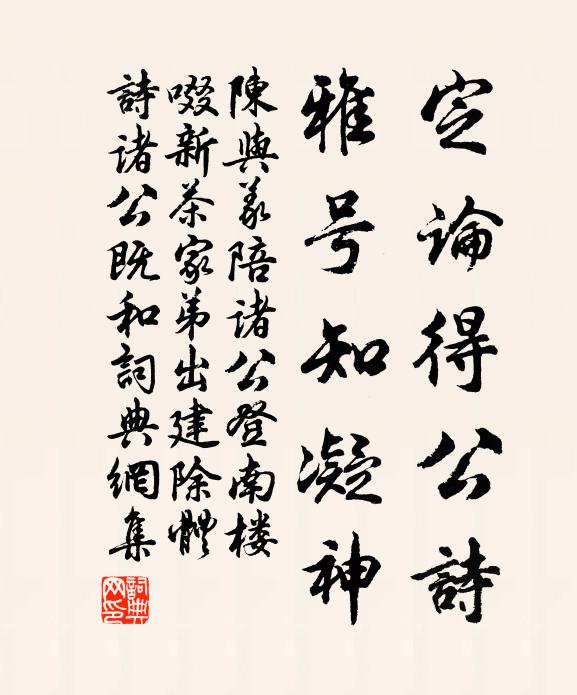 定論得公詩
雅号知凝神
陳與義陪諸公登南楼
啜新茶家弟出建除體
詩諸公既和詞典網集
詞典網印